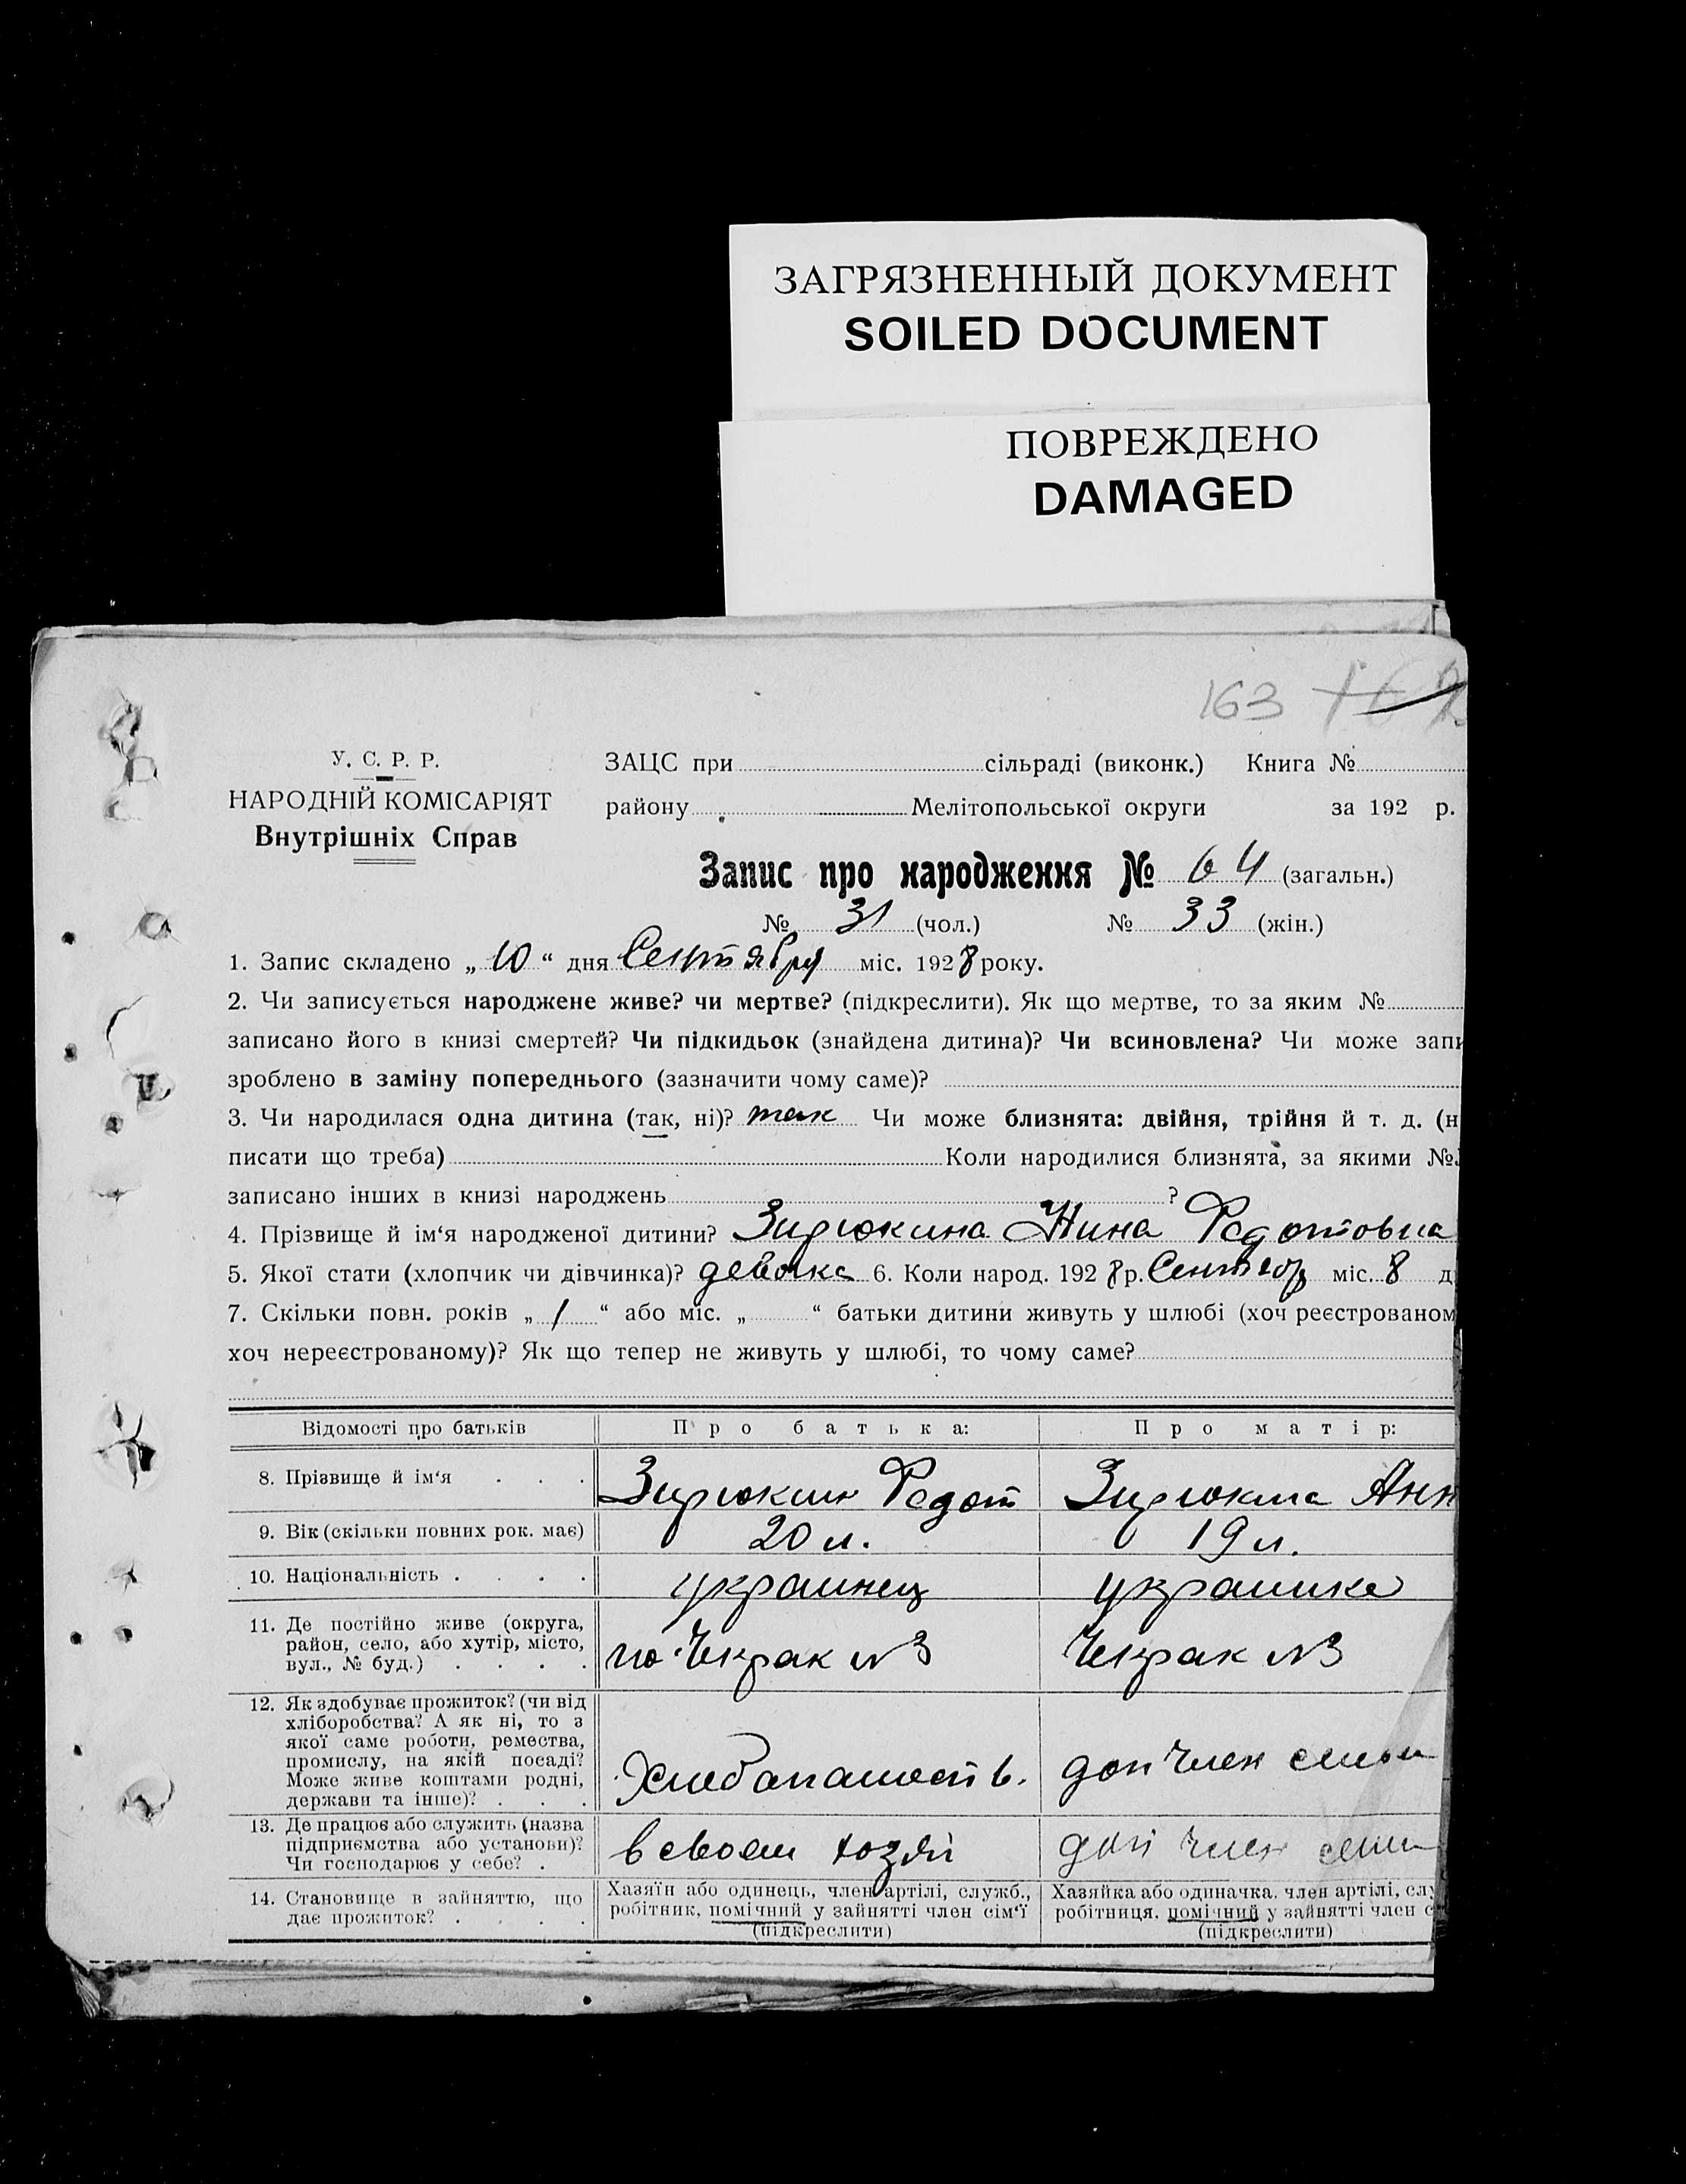 ЗАГРЯЗНЕННЫЙ ДОКУМЕНТ
SOILED DOCUMENT
ПОВРЕЖДЕНО
DAMAGED
163
У. С. Р. Р.
НАРОДНІЙ КОМІСАРІЯТ
Внутрішніх Справ
ЗАЦС при сільраді (виконк.) Книга №
району Мелітопольської округи за 192 р.
Запис про народження № 64 (загальн.)
№ 31 (чол.) № 33 (жін.)
1. Запис складено „ 10 “ дня Сентября міс. 1928 року.
2. Чи записується народжене живе? чи мертве? (підкреслити). Як що мертве, то за яким №
записано його в книзі смертей? Чи підкидьок (знайдена дитина)? Чи всиновлена? Чи може запи
зроблено в заміну попереднього (зазначити чому саме)?
3. Чи народилася одна дитина (так, ні)? так Чи може близнята: двійня, трійня й т. д. (н
писати що треба) Коли народилися близнята, за якими №
записано інших в книзі народжень ?
4. Прізвище й ім‘я народженої дитини? Зирюкина Нина Федотовна
5. Якої стати (хлопчик чи дівчинка)? девочка 6. Коли народ. 1928 р. міс. 8 д
7. Скільки повн. років „ 1 “ або міс. „ “ батьки дитини живуть у шлюбі (хоч реєстрованом
хоч нереєстрованому)? Як що тепер не живуть у шлюбі, то чому саме?
Відомості про батьків Про батька: Про матір:
8. Прізвище й ім‘я . . . Зирюкин Федот Анн
9. Вік (скільки повних рок. має) 20 л. 19 л.
10. Національність . . . . украинец украинка
11. Де постійно живе (округа,
район, село, або хутір, місто,
вул., № буд.) . . . . Чекрак №3 Чекрак №3
12. Як здобуває прожиток? (чи від
хліборобства? А як ні, то з
якої саме роботи, ремества,
промислу, на якій посаді?
Може живе коштами родні,
держави та інше)? . . . член семьи
13. Де працює або служить (назва
підприємства або установи)?
Чи господарює у себе? . в своем хозяй член
14. Становище в зайняттю, що
дає прожиток? . . . .
Хазяїн або одинець, член артілі, служб.,
робітник, помічний у зайнятті член сім‘ї
(підкреслити)
Хазяйка або одиначка, член артілі, слу
робітниця, помічний у зайнятті член с
(підкреслити)